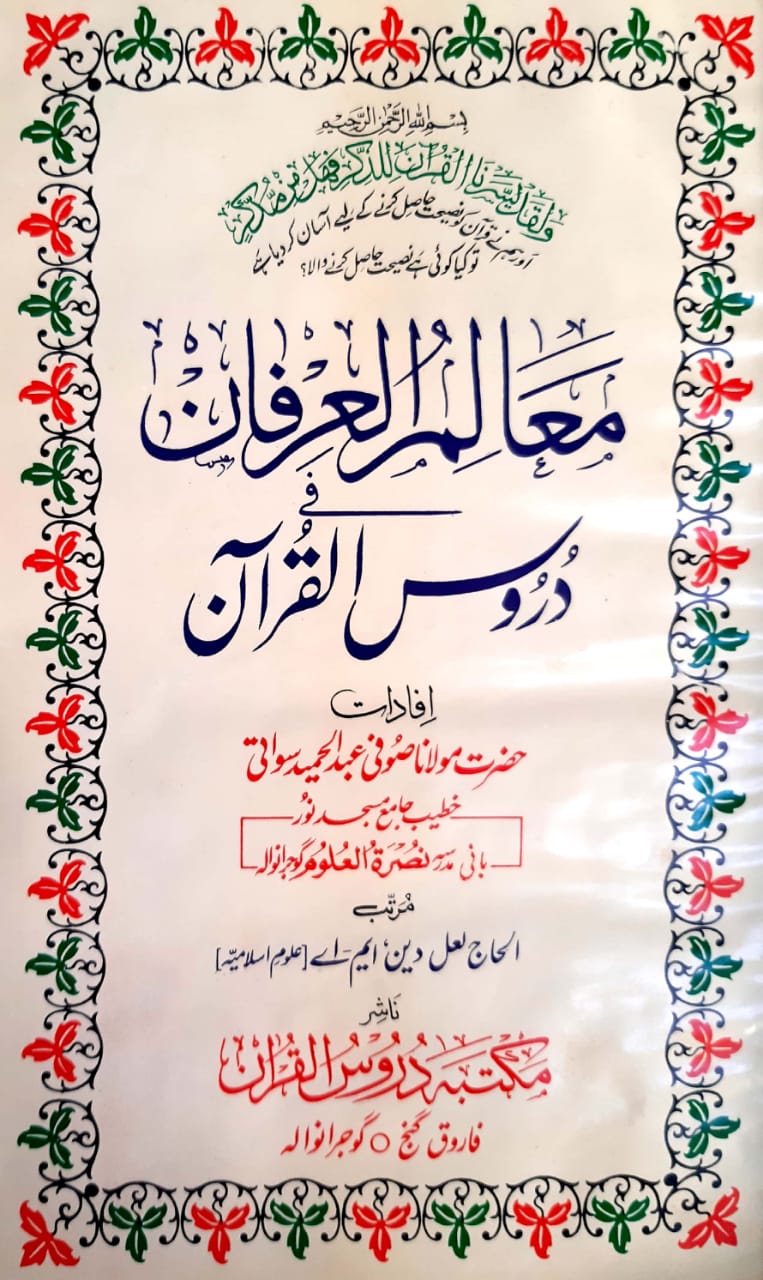 بسم الله الرحمن الرحيم
ولقد يسرنا القرآن للذكر فهل من مدكر
اور ہم نے قرآن کو نصیحت حاصل کرنے کے لیے آسان کر دیا ہے
تو کیا کوئی ہے نصیحت حاصل کرنے والا؟
مَعَالِمُ العِرفَان
فی
دُرُوس القُرآن
اِفادات
حضرت مولانا صُوفی عبدالحمید سواتی
خطیب جامع مسجد نُور
بانی مدرسہ نُصرۃُ العلُوم گوجرانوالہ
مُرتّب
الحاج لعل دین، ایم-اے [علومِ اسلامیّہ]
نَاشِر
مکتبہ دُرُوسُ القُرآن
فاروق گنج ○ گوجرانوالہ